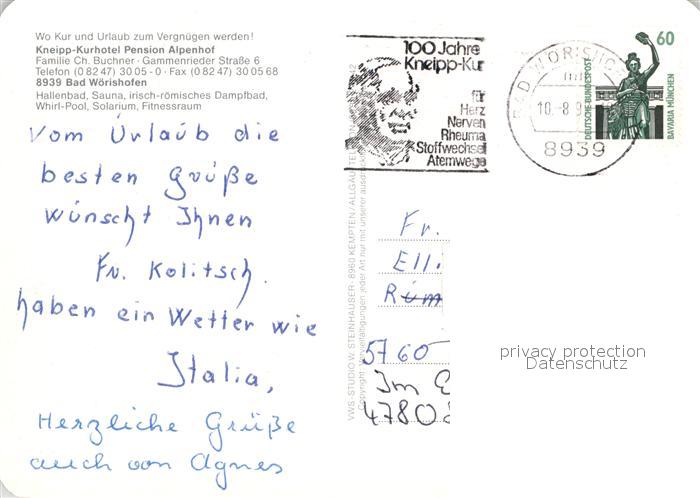 Wo Kur und Urlaub zum Vergnügen werden!
Kneipp-Kurhotel Pension Alpenhof
Familie Ch. Buchner · Gammenrieder Straße 6
Telefon (0 82 47) 30 05 - 0 · Fax (0 82 47) 30 05 68
8939 Bad Wörishofen
Hallenbad, Sauna, irisch-römisches Dampfbad,
Whirl-Pool, Solarium, Fitnessraum
Vom Ürlaub die
besten Grüße
wünscht Ihnen
Fr. Kolitsch.
haben ein Wetter wie
Italia,
Herzliche Grüße
auch von Agnes
100 Jahre
Kneipp-Kur
für
Herz
Nerven
Rheuma
Stoffwechsel
Atemwege
BAD WÖRISHO
10.-8.9
8939
60
DEUTSCHE BUNDESPOST
BAVARIA MÜNCHEN
VWS-STUDIO W. STEINHAUSER · 8960 KEMPTEN/ALLGÄU
Copyright: Vervielfältigungen jeder Art nur mit unserer
Fr.
Elli
Rüm
5760
Im
4780
privacy protection
Datenschutz